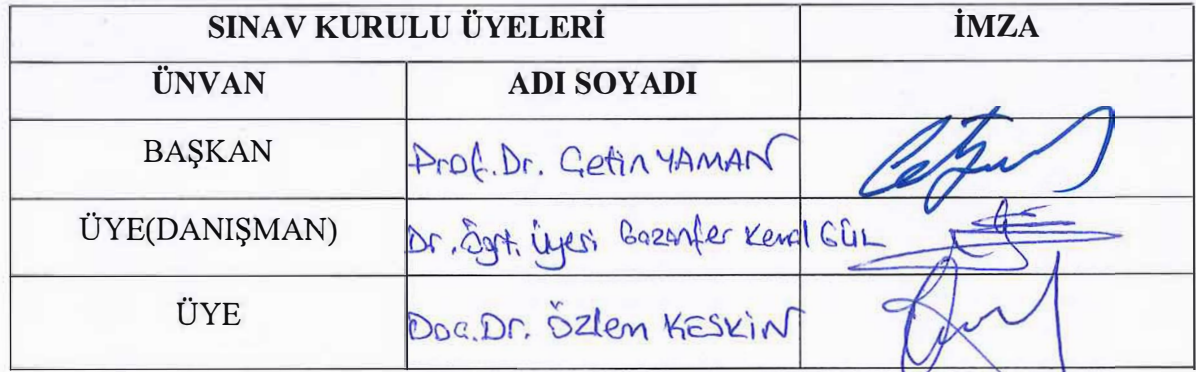 SINAV KURULU ÜYELERİ İMZA
ÜNVAN ADI SOYADI
BAŞKAN Prof.Dr. Çetin YAMAN
ÜYE(DANIŞMAN) Dr. Öğrt. Üyesi Gazanfer Kemal GÜL
ÜYE Doç.Dr. Özlem KESKİN